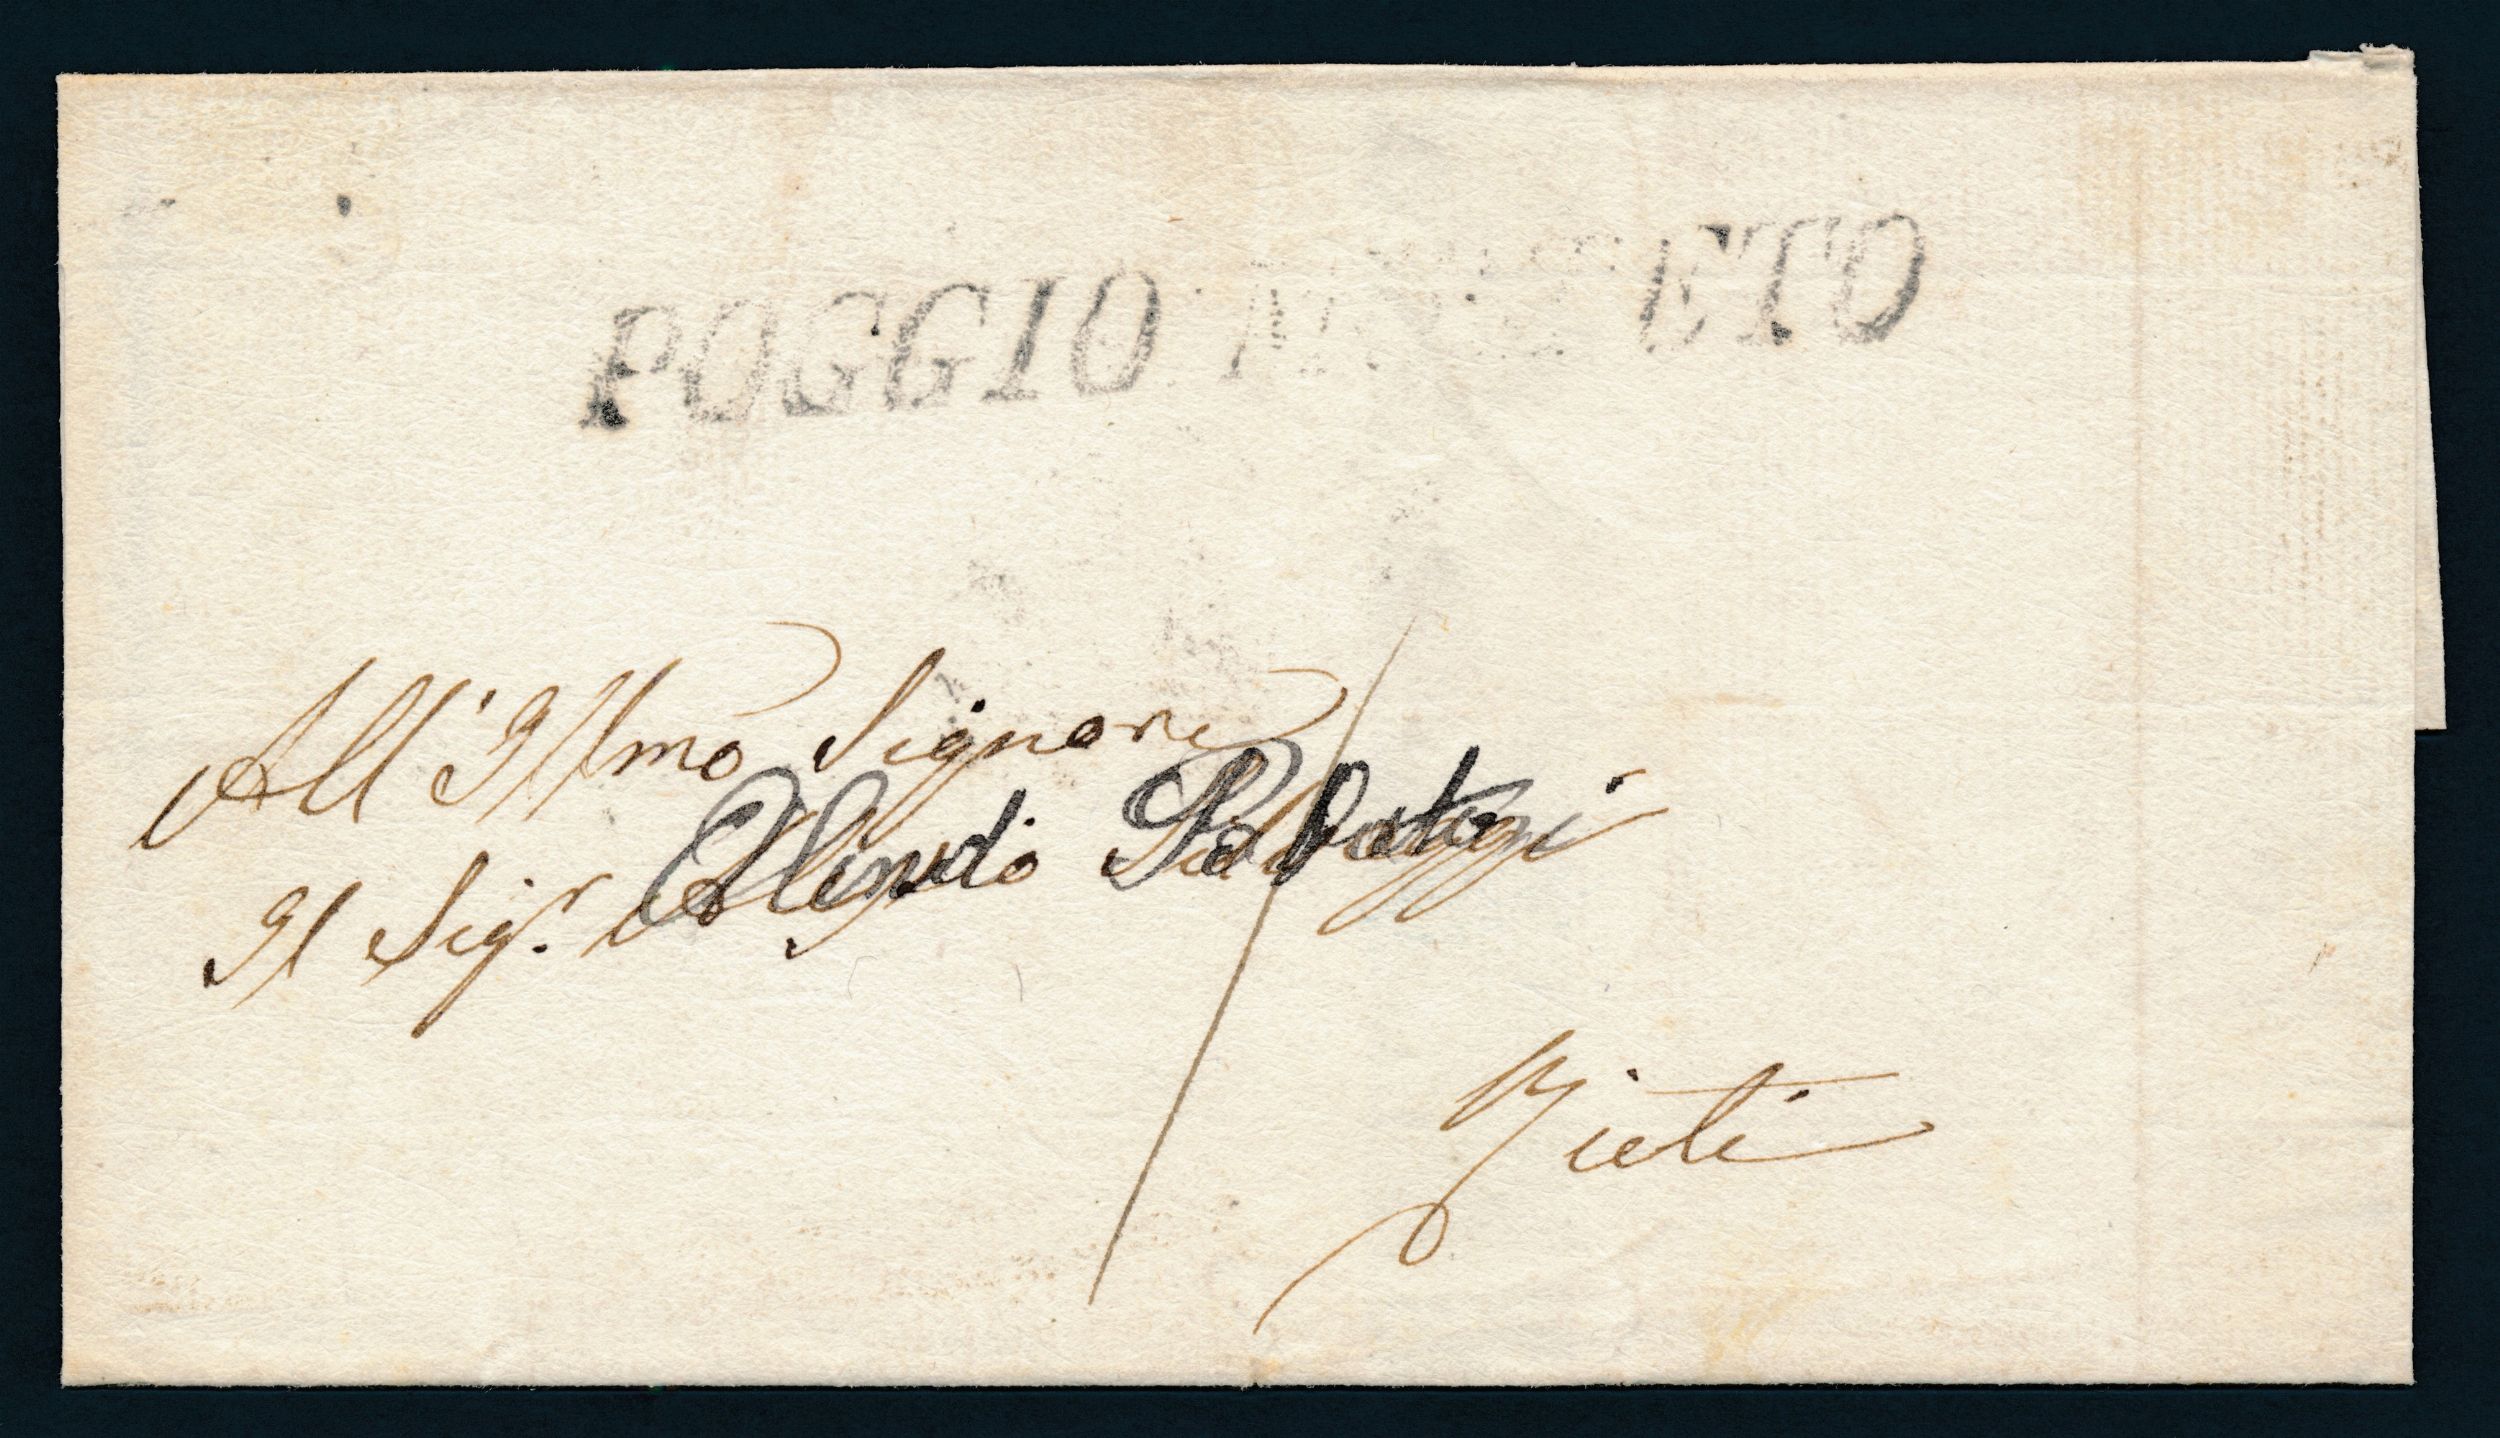 POGGIO M ETO
All'Illmo Signore
Il Sigr. Olindo
Rieti